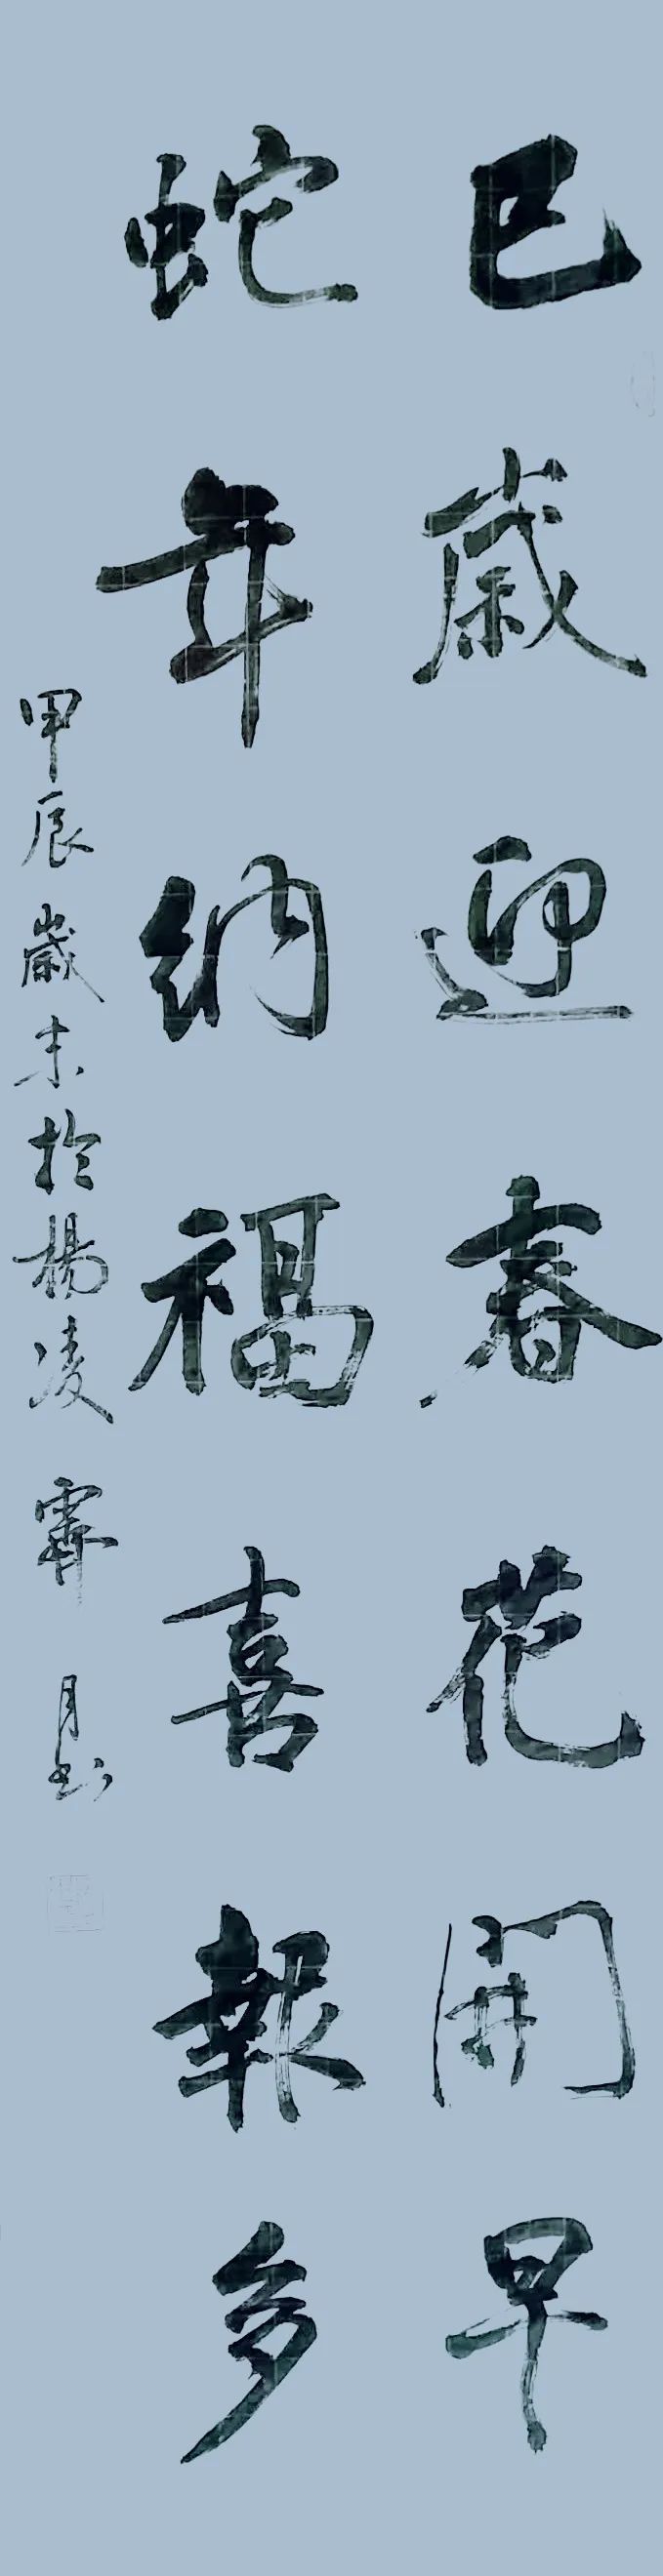 巳歲迎春花開早
蛇年納福喜報多
甲辰歲末於楊凌 霽月書